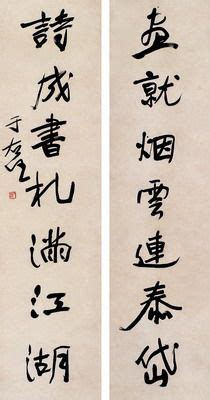 畫就烟雲連泰岱
詩成書札滿江湖
于右任